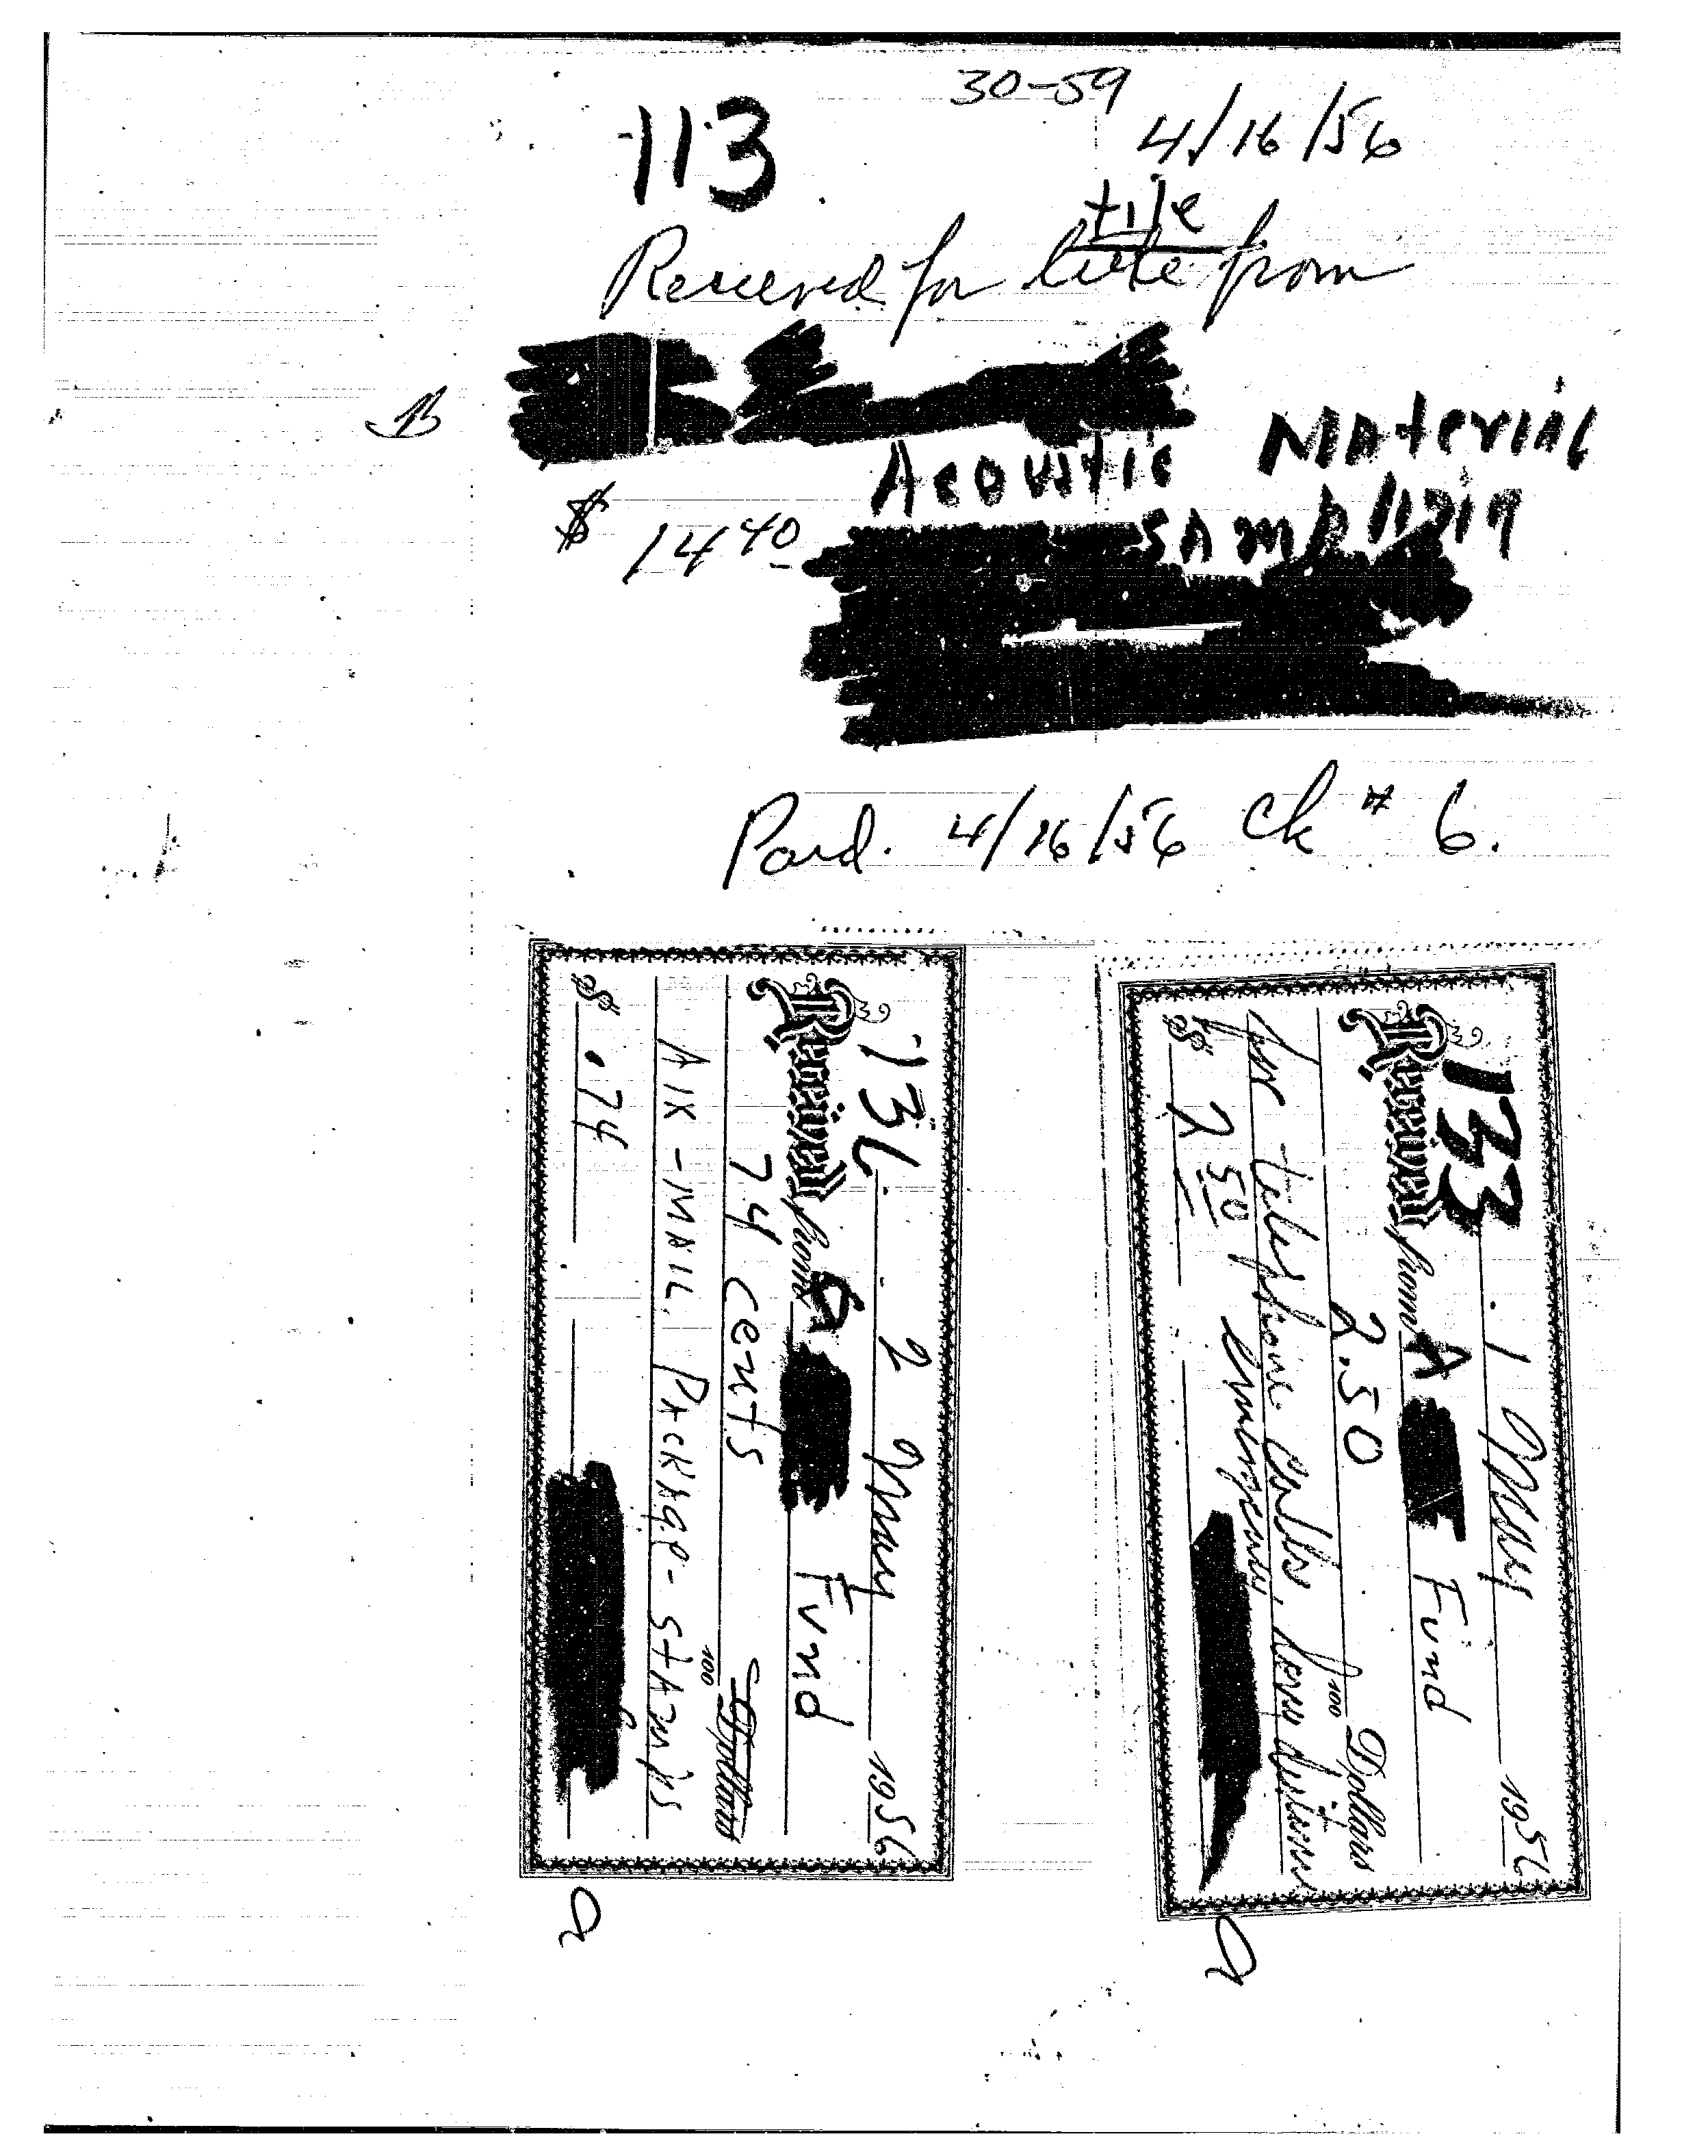 30-59
113
4/16/56
tile
Received for tile from
B
Acoustic Material
sampling
$ 14 40
Paid. 4/16/56 ck # 6.
2 May 1956
Received from G Fund
74 cents
100 Dollars
AIR-MAIL PACKAGE - STAMPS
$ .74
a
133
1 May 1956
Received from A Fund
2.50
100 Dollars
for telephone calls, long distance
$ 2 50
a